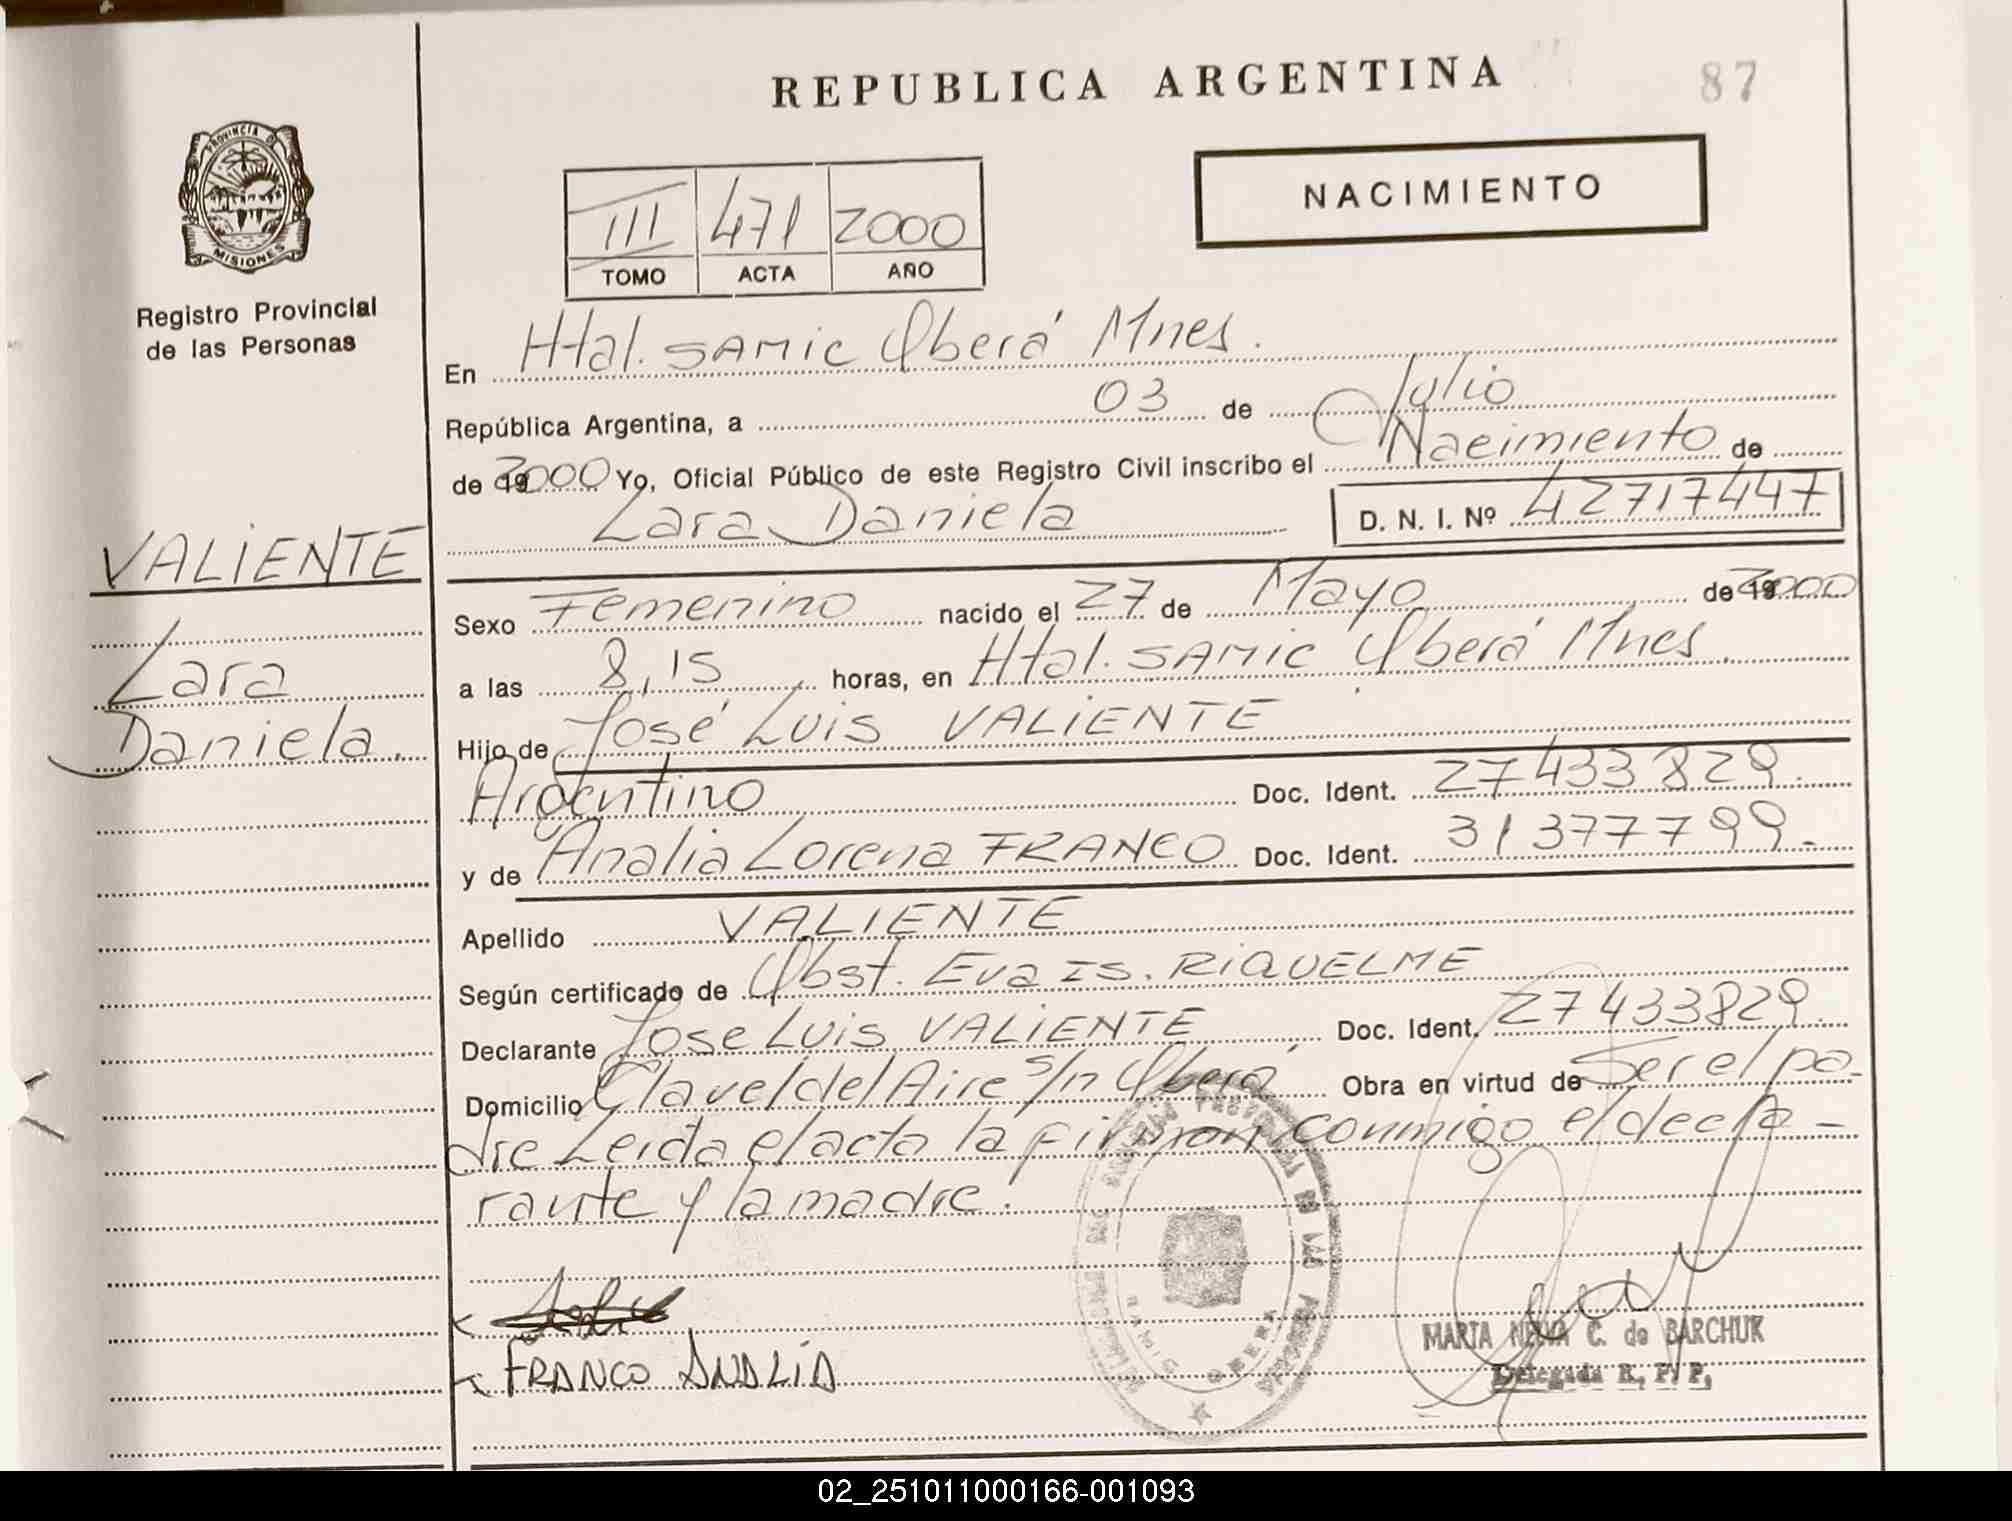 REPUBLICA ARGENTINA
87
PROVINCIA DE
MISIONES
Registro Provincial
de las Personas
NACIMIENTO
III 471 2000
TOMO ACTA AÑO
En Htal. SAMIC Oberá Mnes.
República Argentina, a 03 de Julio
de 2000 Yo, Oficial Público de este Registro Civil inscribo el Nacimiento de
Lara Daniela D. N. I. Nº 42717447
VALIENTE
Lara
Daniela.
Sexo Femenino nacido el 27 de Mayo de 2000
a las 8,15 horas, en Htal. SAMIC Oberá Mnes.
Hijo de José Luis VALIENTE
Argentino Doc. Ident. 27433829.
y de Analia Lorena FRANCO Doc. Ident. 31377799.-
Apellido VALIENTE
Según certificado de Obst. Eva Is. RIQUELME
Declarante Jose Luis VALIENTE Doc. Ident. 27433829.
Domicilio Clavel del Aire s/n Oberá Obra en virtud de Ser el pa-
dre Leida el acta la firman conmigo el decla-
rante y la madre.
FRANCO ANALIA
MARTA NELVA C. de BARCHUK
Delegada R. P. P.
02_251011000166-001093